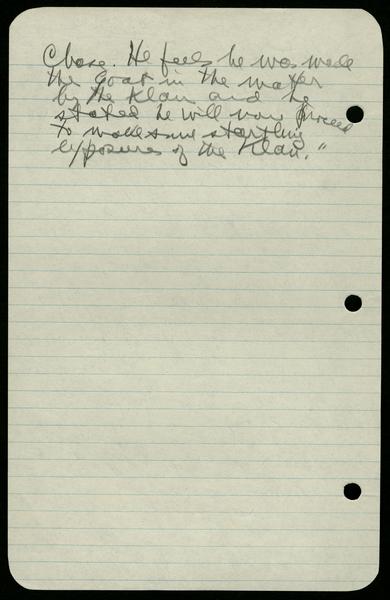 Chase. He feels he was made
the goat in the matter
by the Klan and he
stated he will now proceed
to make some startling
exposures of the Klan."